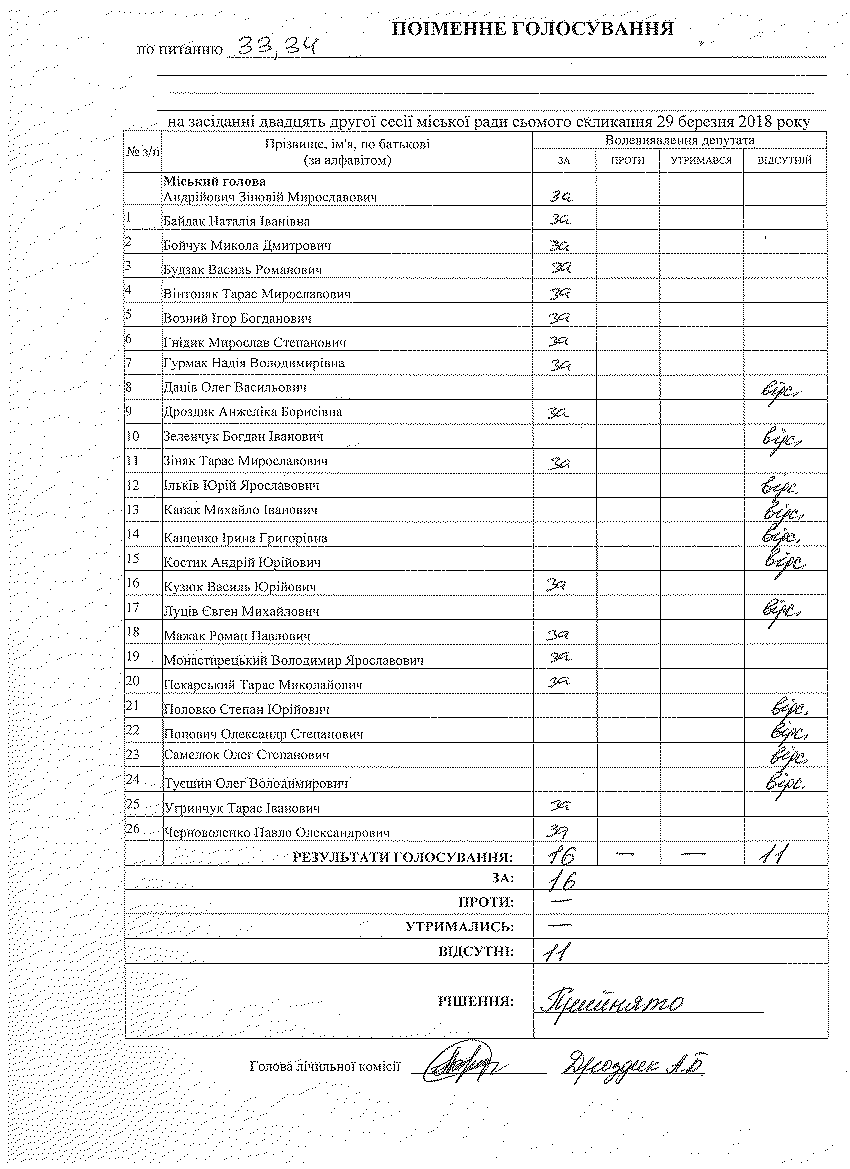 ПОІМЕННЕ ГОЛОСУВАННЯ
по питанню 33, 34
на засіданні двадцять другої сесії міської ради сьомого скликання 29 березня 2018 року
№ з/п Прізвище, ім'я, по батькові (за алфавітом) Волевиявлення депутата
ЗА ПРОТИ УТРИМАВСЯ ВІДСУТНІЙ
Міський голова
Андрійович Зіновій Мирославович за
1 Байдак Наталія Іванівна за
2 Бойчук Микола Дмитрович за
3 Будзак Василь Романович за
4 Вінтоняк Тарас Мирославович за
5 Возний Ігор Богданович за
6 Гнідик Мирослав Степанович за
7 Гурмак Надія Володимирівна за
8 Даців Олег Васильович відс.
9 Дроздик Анжеліка Борисівна за
10 Зеленчук Богдан Іванович відс.
11 Зіняк Тарас Мирославович за
12 Ільків Юрій Ярославович відс.
13 Капак Михайло Іванович відс.
14 Кащенко Ірина Григорівна відс.
15 Костик Андрій Юрійович відс.
16 Кузюк Василь Юрійович за
17 Луців Євген Михайлович відс.
18 Мажак Роман Павлович за
19 Монастирецький Володимир Ярославович за
20 Пекарський Тарас Миколайович за
21 Половко Степан Юрійович відс.
22 Попович Олександр Степанович відс.
23 Самелюк Олег Степанович відс.
24 Туєшин Олег Володимирович відс.
25 Угринчук Тарас Іванович за
26 Черноволенко Павло Олександрович за
РЕЗУЛЬТАТИ ГОЛОСУВАННЯ: 16 — — 11
ЗА: 16
ПРОТИ: —
УТРИМАЛИСЬ: —
ВІДСУТНІ: 11
РІШЕННЯ: Прийнято
Голова лічильної комісії Дроздик А.Б.